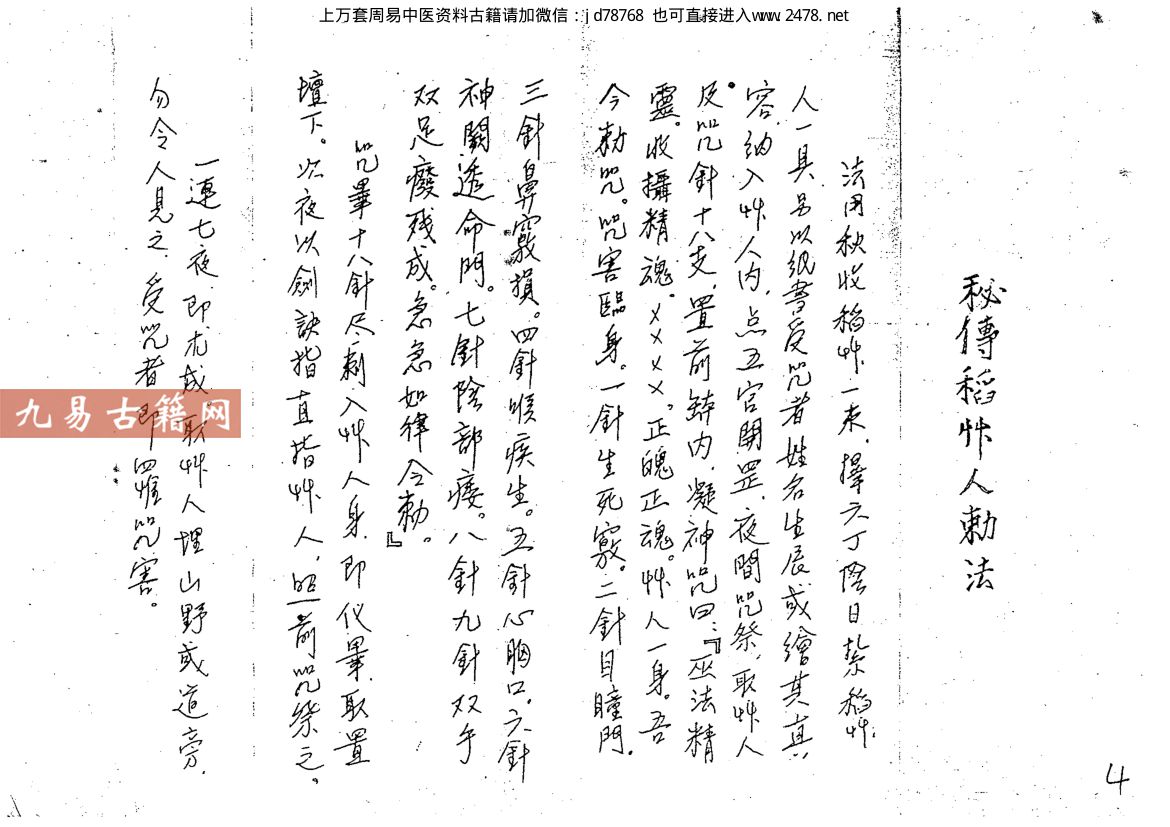 上万套周易中医资料古籍请加微信：jd78768 也可直接进入www.2478.net
秘傳稻艸人勅法
法用秋收稻艸一束，擇六丁陰日紮稻艸
人一具另以紙書受咒者姓名生辰或繪其真
容，納入艸人內，点五官開罡，夜間咒祭，取艸人
及咒針十八支，置前缽內，凝神咒曰：『巫法精
靈。收攝精魂。××××。正魄正魂。艸人一身。吾
今勅咒。咒害臨身。一針生死竅。二針目瞳門。
三針鼻竅損。四針喉疾生。五針心胸口。六針
神闕透命門。七針陰部痿。八針九針双手
双足癈残成。急急如律令勅。』
咒畢十八針尽刺入艸人身，即仪畢，取置
壇下。次夜以劍訣指直指艸人，照前咒祭之。
一連七夜，即尤成。取艸人埋山野或道旁，
勿令人見之，受咒者即罹咒害。
九易古籍网
4